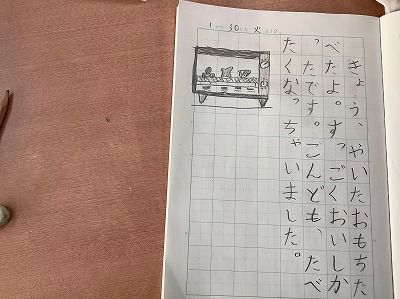 1 30 火
きょう、やいたおもちた
べたよ。すっごくおいしか
ったです。こんども、たべ
たくなっちゃいました。